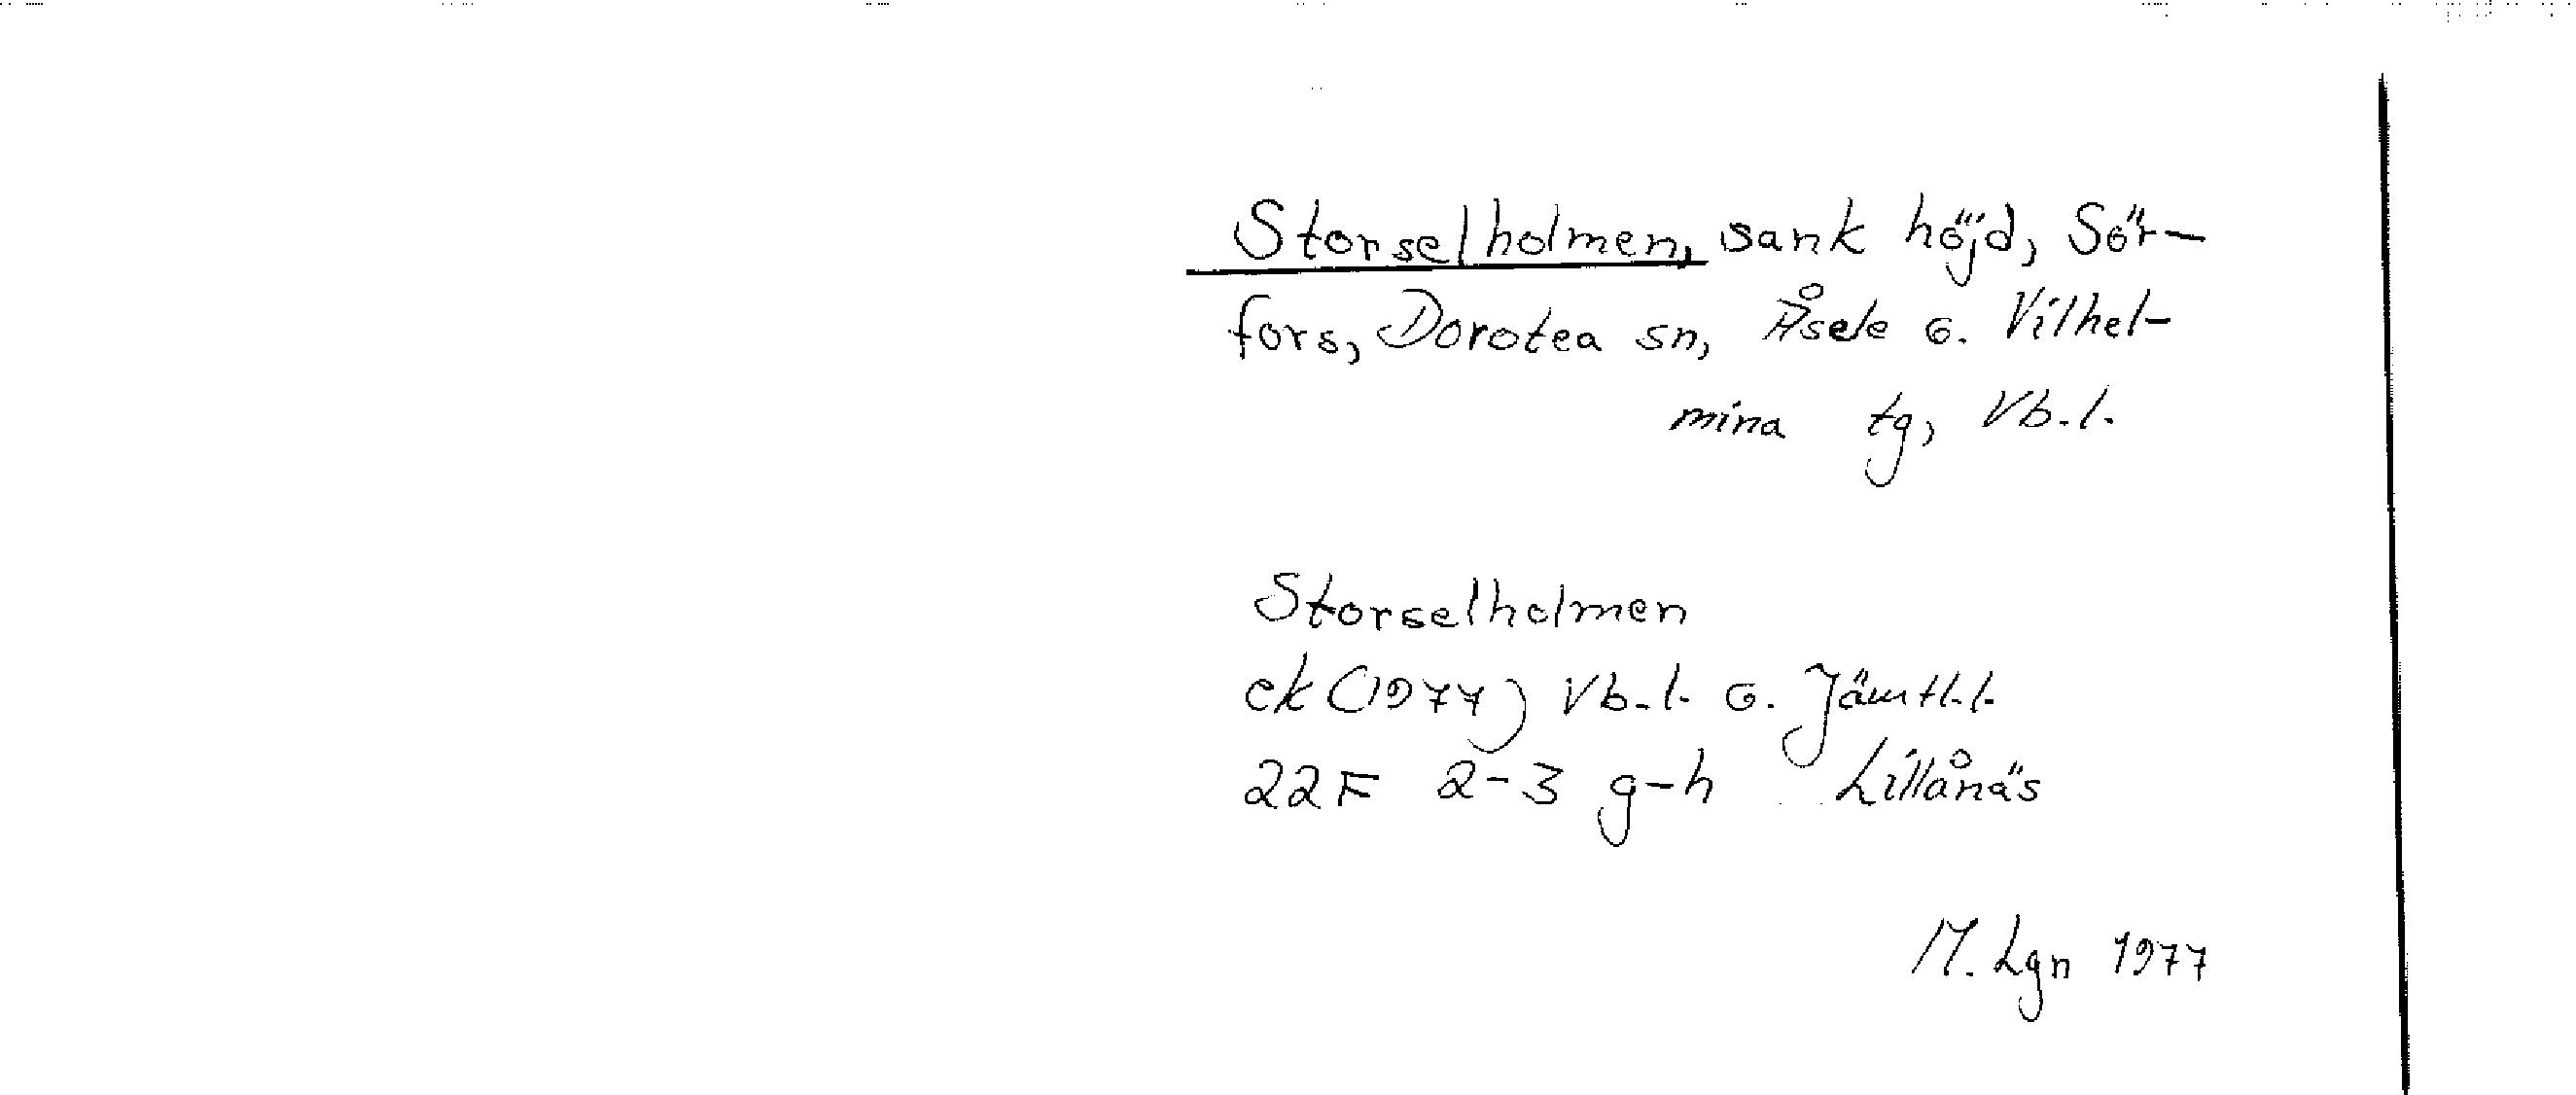 Storselholmen, sank höjd, Sör-
fors, Dorotea sn, Åsele o. Vilhel-
mina tg, Vb. l.
Storselholmen
ek (1977) Vb. l. o. Jämtl. l.
22F 2-3 g-h Lillånäs
M. Lgn 1977